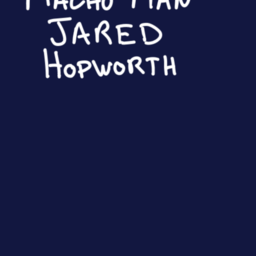 MACHO MAN
JARED
HOPWORTH